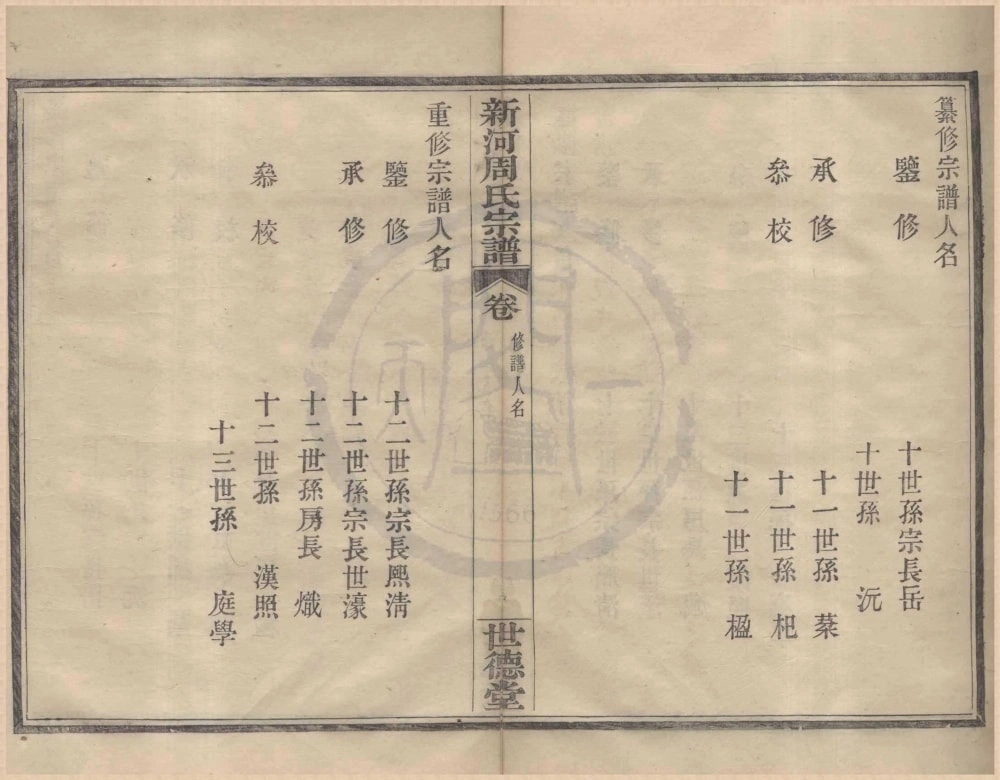 纂修宗譜人名
鑒修
十世孫宗長岳
十世孫 沅
承修
十一世孫 棻
叅校
十一世孫 杞
十一世孫 楹
新河周氏宗譜
卷
修譜人名
世德堂
重修宗譜人名
鑒修
十二世孫宗長熙清
承修
十二世孫宗長世濠
十二世孫房長 熾
叅校
十二世孫 漢照
十三世孫 庭學